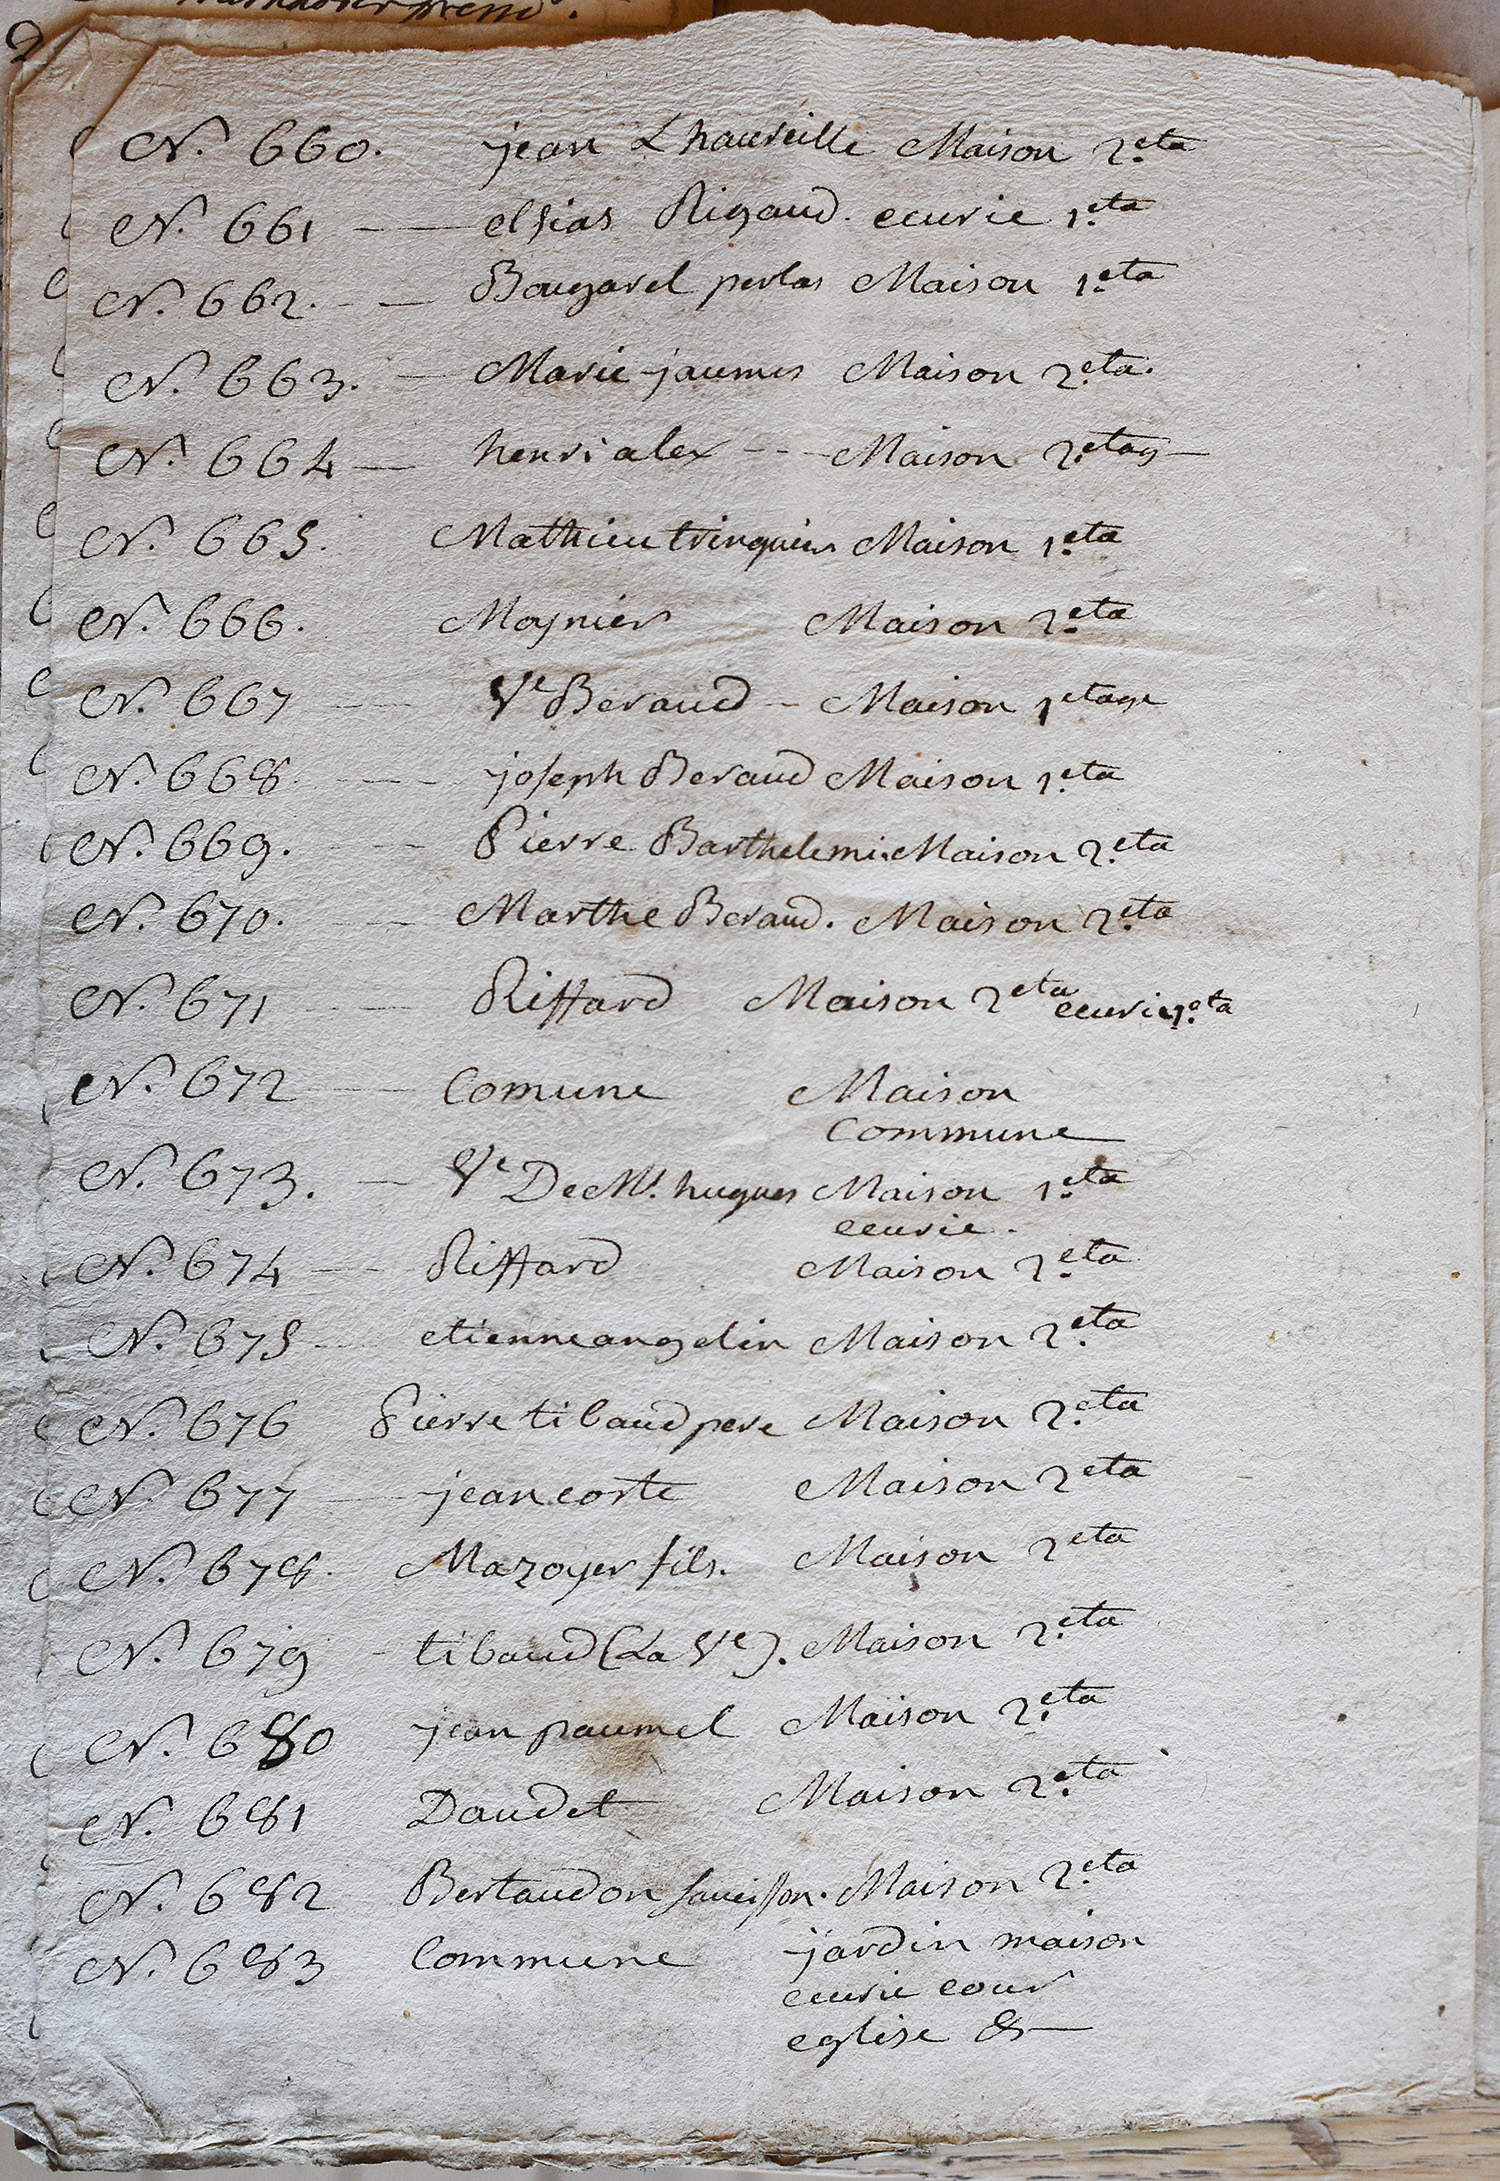 N.° 660. jean Lhauveille Maison 2.eta
N.° 661 — — elsias Rigaud. ecurie 1.eta
N.° 662. - — Bougarel perlas Maison 1.eta
N.° 663. — Marie jaumes Maison 2.eta.
N.° 664 — henri alex - - - Maison 2.etag
N.° 665. Mathieu tringuier Maison 1.eta
N.° 666. Moynier Maison 2.eta
N.° 667 — Ve Beraud - Maison 1 etage
N.° 668 — - joseph Beraud Maison 1.eta
N.° 669. - — Pierre Barthelemi. Maison 2.eta
N.° 670. — Marthe Beraud. Maison 2.eta
N.° 671 - — Riffard Maison 2 eta ecurie 1.eta
N.° 672 — — Comune Maison
Commune
N.° 673. — Ve De Mr. hugues Maison 1.eta
ecurie.
N.° 674 — — Riffard Maison 2.eta
N.° 675 — etienne angelin Maison 2.eta
N.° 676 Pierre tibaud pere Maison 2.eta
N.° 677 — jean coste Maison 2 eta
N.° 678. Mazoyer fils. Maison 2 eta
N.° 679 - tibaud (La Ve). Maison 2.eta
N.° 680 jean paumel Maison 2.eta
N.° 681 Daudet Maison 2.eta
N.° 682 Bertaudon Maison 2.eta
N.° 683 Commune jardin maison
ecurie cour
eglise &